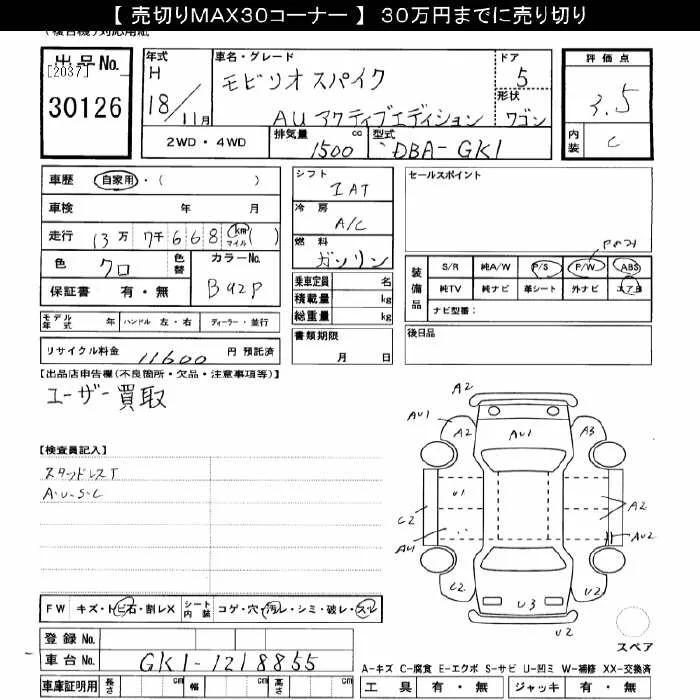 【 売切りMAX30コーナー 】 30万円までに売り切り
出品No.
[2037]
30126
年式
H
18/11月
車名・グレード
モビリオ スパイク
AU アクティブエディション
ドア
5
形状
ワゴン
評価点
3.5
内装
C
2WD・4WD
排気量 1500 cc
型式 DBA-GK1
車歴 自家用・( )
車検 年 月
走行 13万 7千 668 km マイル ( )
色 クロ
色替
カラーNo. B92P
保証書 有・無
シフト
IAT
冷房
A/C
燃料
ガソリン
乗車定員 名
積載量 kg
総重量 kg
セールスポイント
Pのみ
装備品
S/R 純A/W P/S P/W ABS
純TV 純ナビ 革シート 外ナビ エアB
ナビ型番:
モデル年式 年 ハンドル 左・右 ディーラー・並行
書類期限
月 日
後日品
リサイクル料金 11600 円 預託済
【出品店申告欄(不良箇所・欠品・注意事項等)】
ユーザー買取
【検査員記入】
スタッドレスT
A・U・S・C
A2
AU1
A2
AU1
A3
U1
C2
A2
AU1
AU2
C2
U3
U2
U2
スペア
FW キズ・トビ石・割レX シート内装 コゲ・穴・汚レ・シミ・破レ・スレ
登録No.
車台No. GK1-1218855
車庫証明用 長さ cm 幅 cm 高さ cm
A-キズ C-腐食 E-エクボ S-サビ U-凹ミ W-補修 XX-交換済
工具 有・無 ジャッキ 有・無